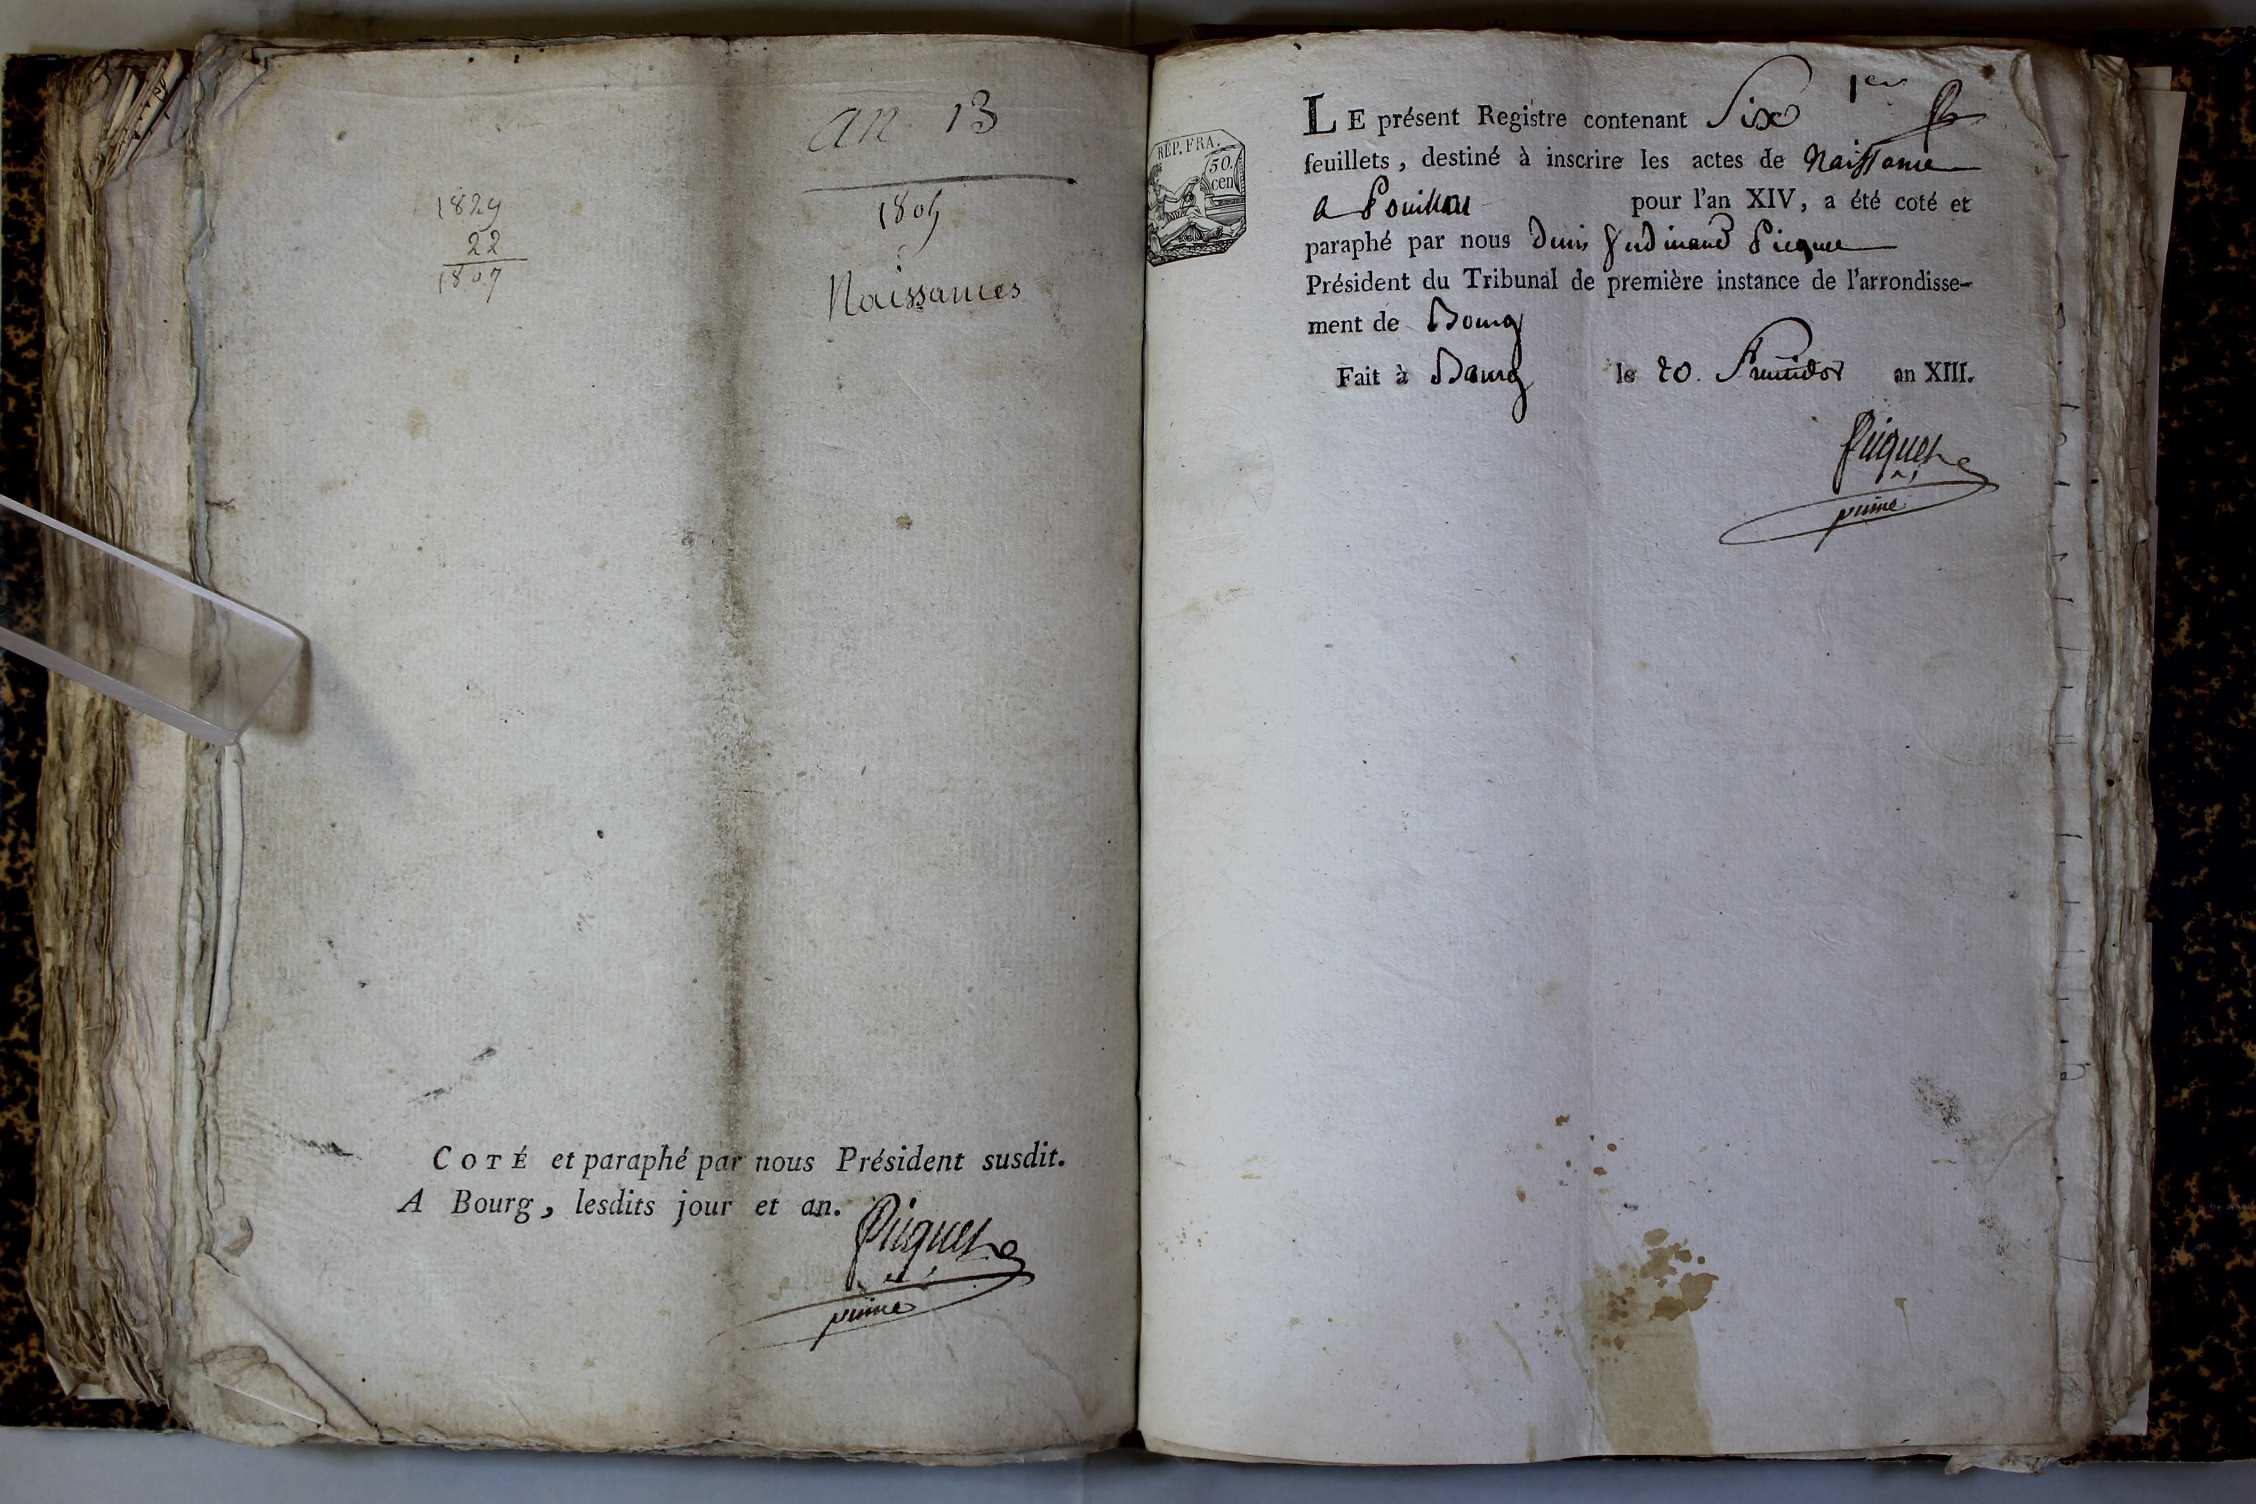 an 13
1805
Naissances
1829
22
1807
COTÉ et paraphé par nous Président susdit.
A Bourg, lesdits jour et an.
Picquet
1er
LE présent Registre contenant Six
feuillets, destiné à inscrire les actes de Naissance
a Pouillat pour l'an XIV, a été coté et
paraphé par nous Denis Ferdinand Picquet
Président du Tribunal de première instance de l'arrondisse-
ment de Bourg
Fait à Bourg le 20. Fructidor an XIII.
Picquet
RÉP. FRA.
50.
cen